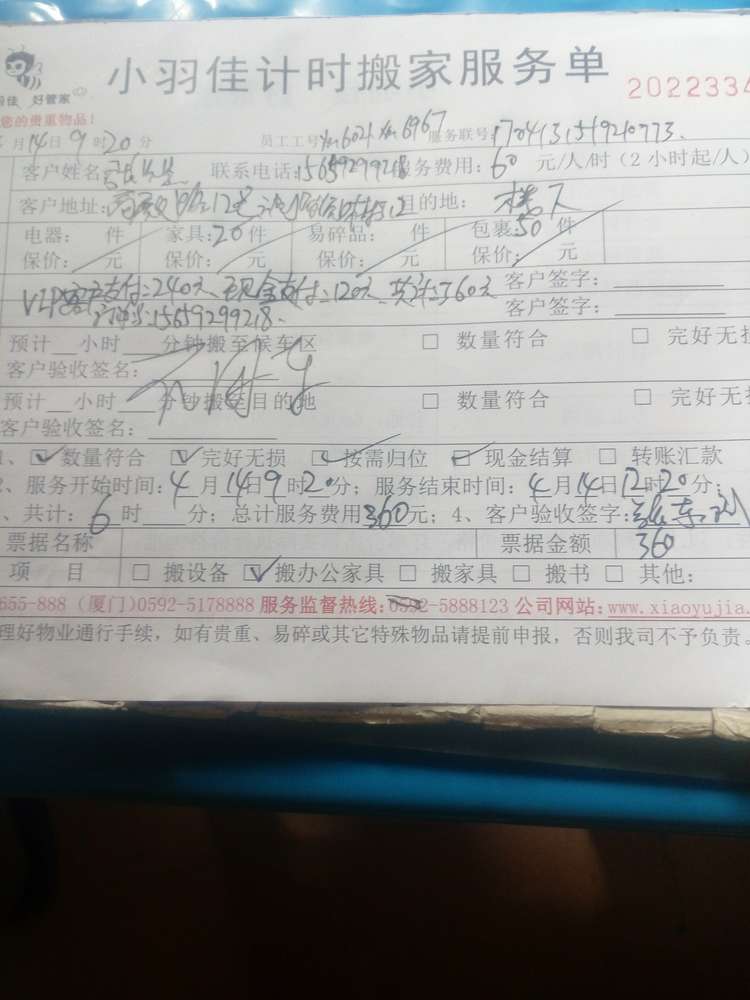 小羽佳计时搬家服务单
2022334
佳 好管家
您的贵重物品!
月14日9时20分 员工工号 服务联号:
客户姓名: 联系电话:15659299218 服务费用:60元/人/时(2小时起/人)
客户地址: 目的地:楼下
电器: 件 家具:20件 易碎品: 件 包裹:50件
保价: 元 保价: 元 保价: 元 保价: 元
VIP客户支付:240元、现金支付:120元、共计:360元 客户签字:
15659299218. 客户签字:
预计 小时 分钟搬至候车区 □ 数量符合 □ 完好无损
客户验收签名:
预计 小时 分钟搬至目的地 □ 数量符合 □ 完好无
客户验收签名:
1、☑数量符合 ☑完好无损 ☑按需归位 ☑现金结算 □ 转账汇款
、服务开始时间:4月14日9时20分;服务结束时间:4月14日12时20分;
、共计:6时 分;总计服务费用360元;4、客户验收签字:
票据名称 票据金额 360
项 目 □ 搬设备 ☑搬办公家具 □ 搬家具 □ 搬书 □ 其他:
655-888 (厦门)0592-5178888 服务监督热线:0592-5888123 公司网站:www.xiaoyujia.
理好物业通行手续,如有贵重、易碎或其它特殊物品请提前申报,否则我司不予负责。